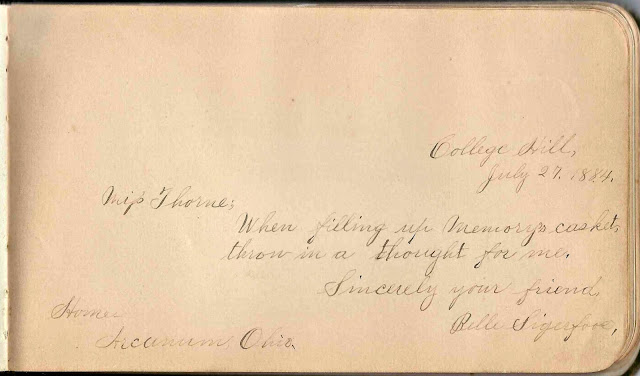 College Hill,
July 27. 1884.
Miss Thorne;
When filling up Memory's casket,
throw in a thought for me.
Sincerely your friend,
Belle Sigerfoos,
Home
Arcanum, Ohio.